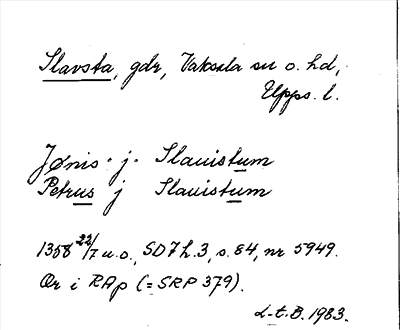 Slavsta, gdr, Vaksala sn o. hd,
Upps. l.
Jønis j. Slauistum
Petrus j Slauistum
1358 22/7 u.o., SD 7 h.3, s. 84, nr 5949.
Or i RAp (=SRP 379).
L-t.B. 1983.